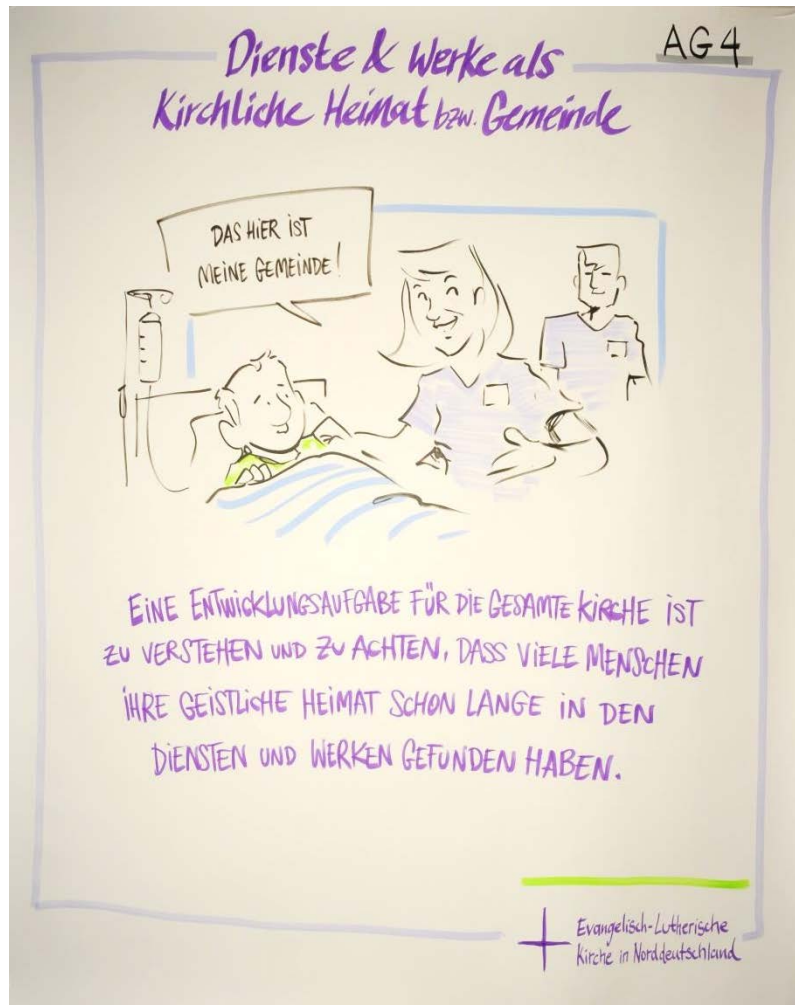 AG 4
Dienste & Werke als
Kirchliche Heimat bzw. Gemeinde
DAS HIER IST
MEINE GEMEINDE!
EINE ENTWICKLUNGSAUFGABE FÜR DIE GESAMTE KIRCHE IST
ZU VERSTEHEN UND ZU ACHTEN, DASS VIELE MENSCHEN
IHRE GEISTLICHE HEIMAT SCHON LANGE IN DEN
DIENSTEN UND WERKEN GEFUNDEN HABEN.
Evangelisch-Lutherische
Kirche in Norddeutschland